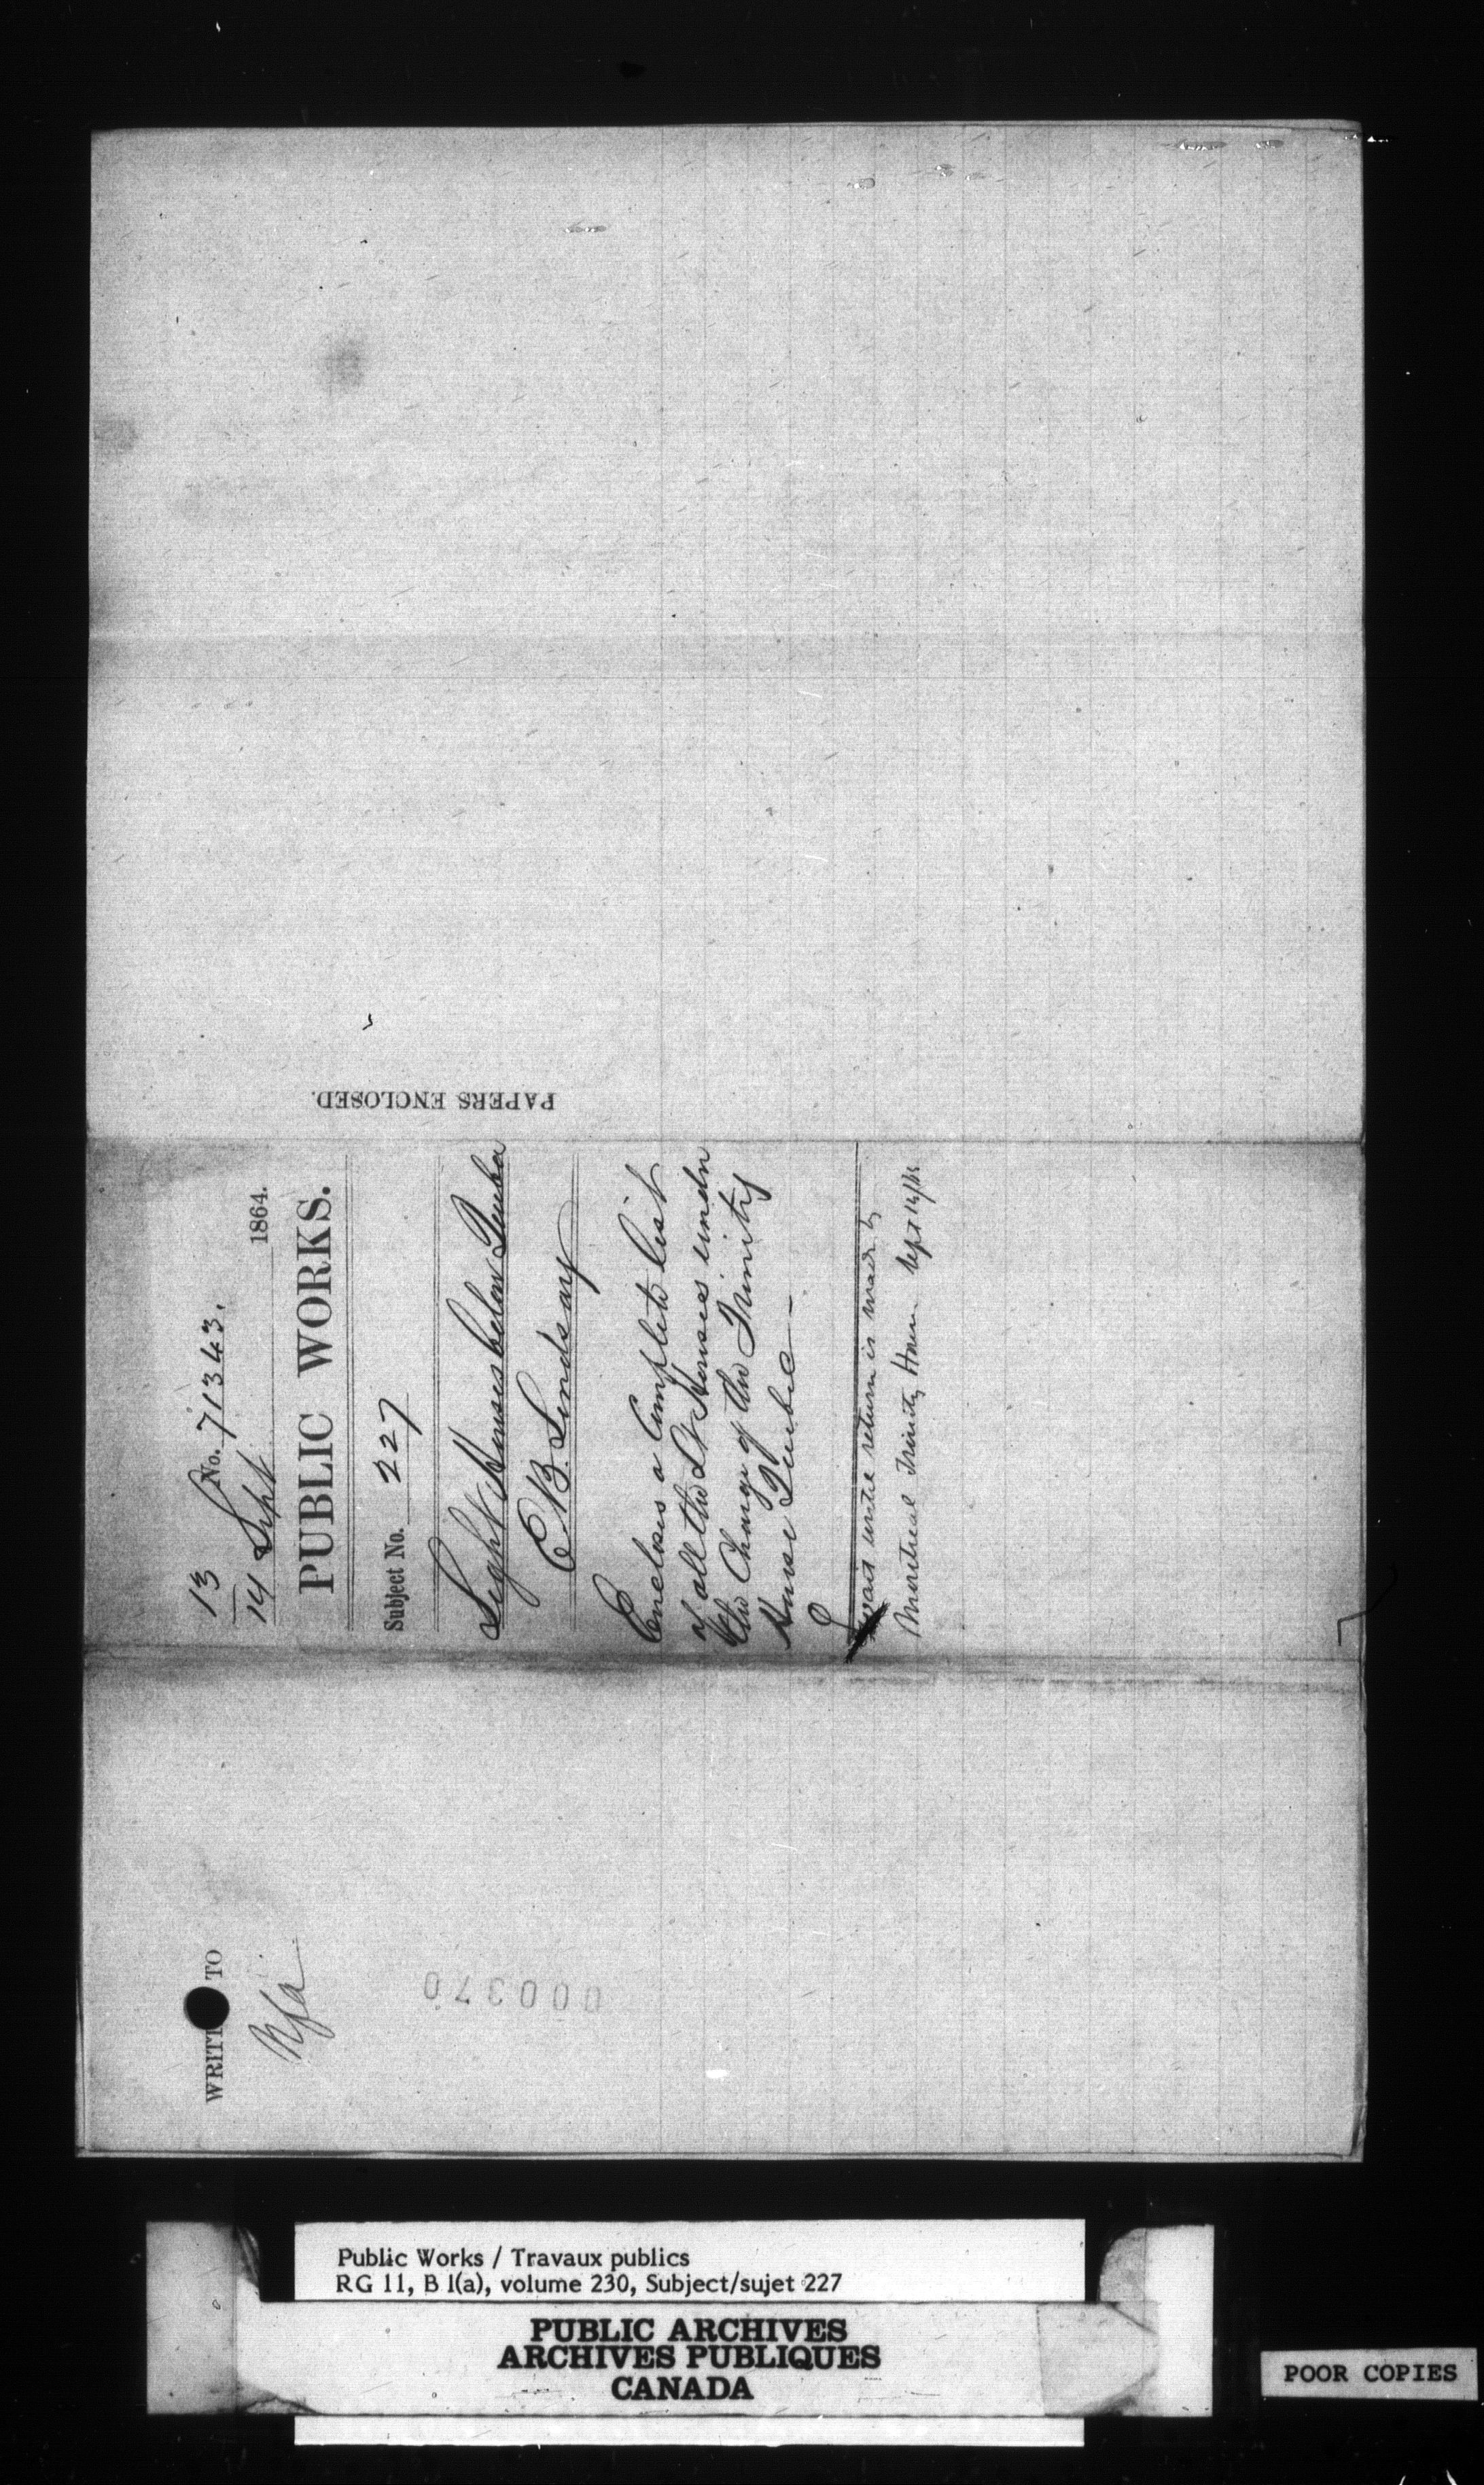 PAPERS ENCLOSED.
13 No. 71343.
14 Sept 1864.
PUBLIC WORKS.
Subject No. 227
Light Houses below Quebec
E B. Lindsay
Encloses a Complete list
of all the Lt Houses under
the Charge of the Trinity
House Quebec —
await until return is made by
Montreal Trinity House Sept 14/64
WRITT TO
Nfa
000370
Public Works / Travaux publics
RG 11, B 1(a), volume 230, Subject/sujet 227
PUBLIC ARCHIVES
ARCHIVES PUBLIQUES
CANADA
POOR COPIES